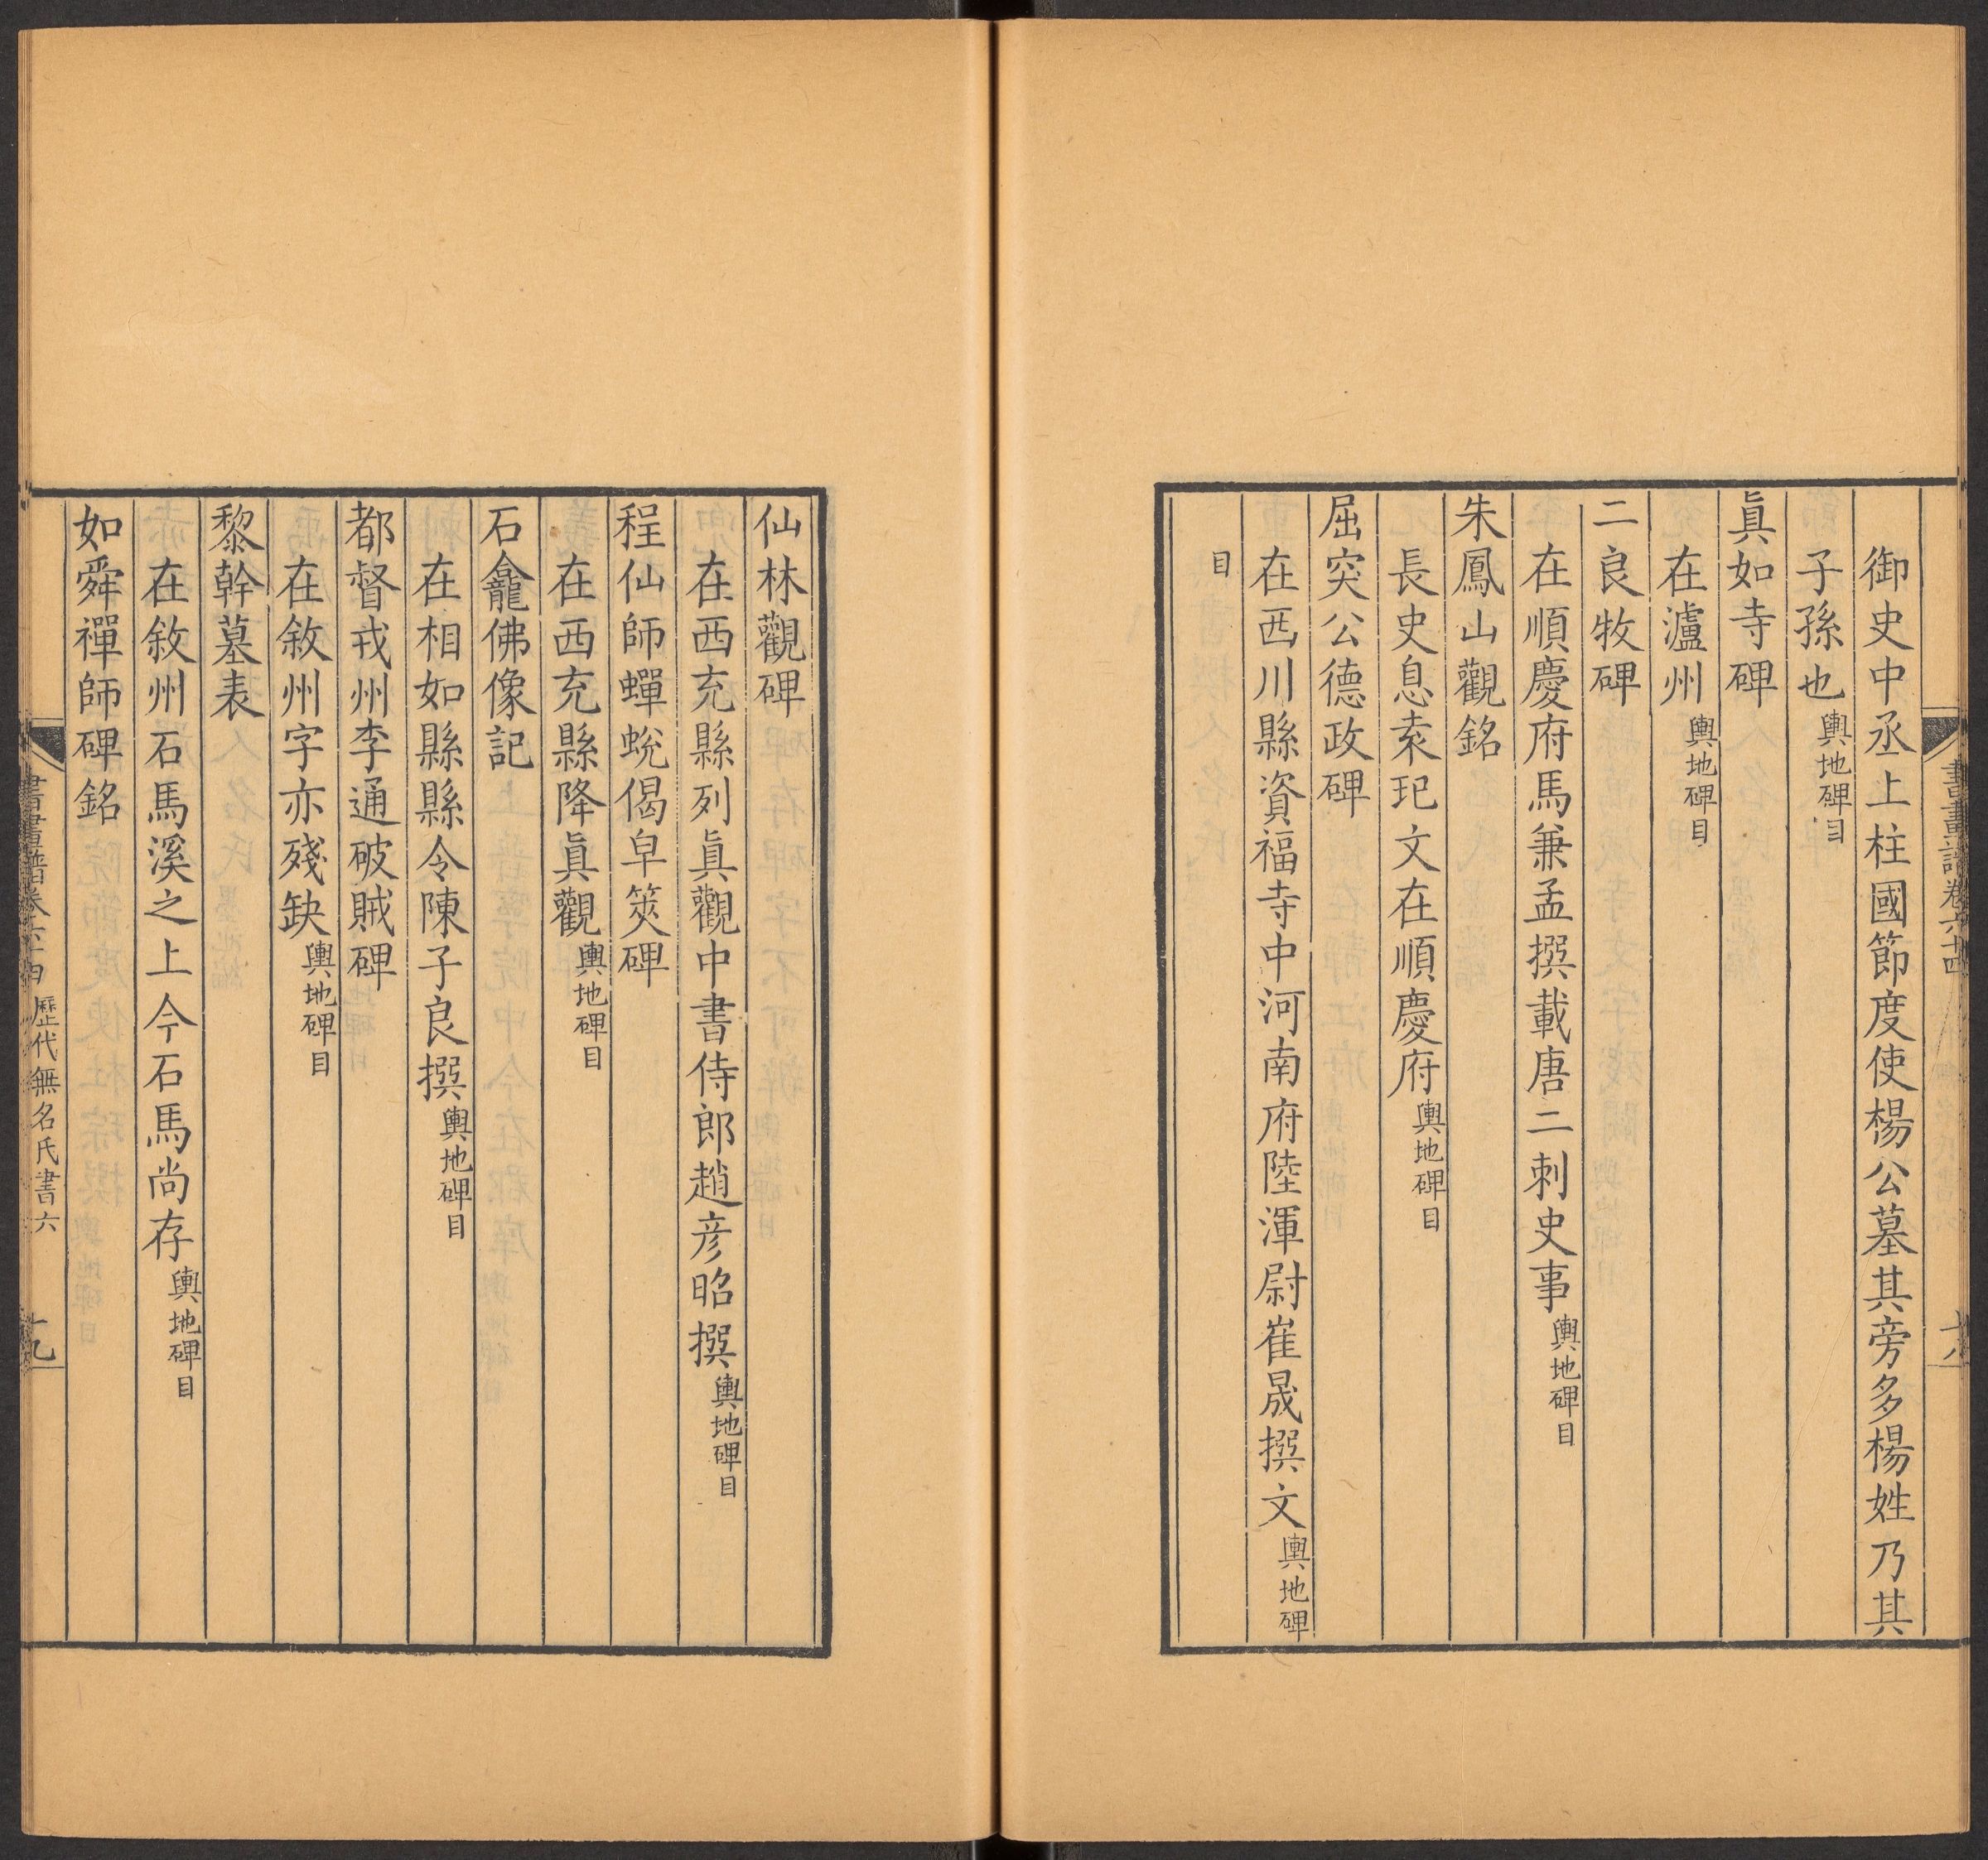 御史中丞上柱國節度使楊公墓其旁多楊姓乃其
子孫也輿地碑目
眞如寺碑
在瀘州輿地碑目
二良牧碑
在順慶府馬兼孟撰載唐二刺史事輿地碑目
朱鳳山觀銘
長史息袁玘文在順慶府輿地碑目
屈突公德政碑
在西川縣資福寺中河南府陸渾尉崔晟撰文輿地碑
目
書畫譜卷六十四
十八
仙林觀碑
在西充縣列眞觀中書侍郎趙彥昭撰輿地碑目
程仙師蟬蛻偈皁筴碑
在西充縣降眞觀輿地碑目
石龕佛像記
在相如縣縣令陳子良撰輿地碑目
都督戎州李通破賊碑
在敘州字亦殘缺輿地碑目
黎幹墓表
在敘州石馬溪之上今石馬尚存輿地碑目
如舜禪師碑銘
書畫譜卷六十四 歷代無名氏書六
十九